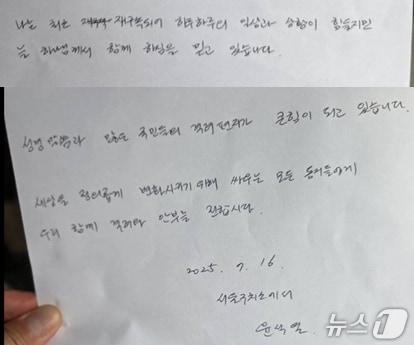 나는 최근 재구속되어 하루하루의 일상과 상황이 힘들지만
늘 하나님께서 함께 하심을 믿고 있습니다.
성경 말씀과 많은 국민들의 격려 편지가 큰 힘이 되고 있습니다.
세상을 정의롭게 변화시키기 위해 싸우는 모든 동지들에게
우리 함께 격려와 안부를 전합시다.
2025. 7. 16.
서울구치소에서
윤석열.
뉴스1